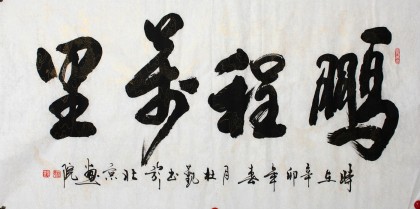 鹏程万里
時在辛卯年春月杜勤书於北京画院